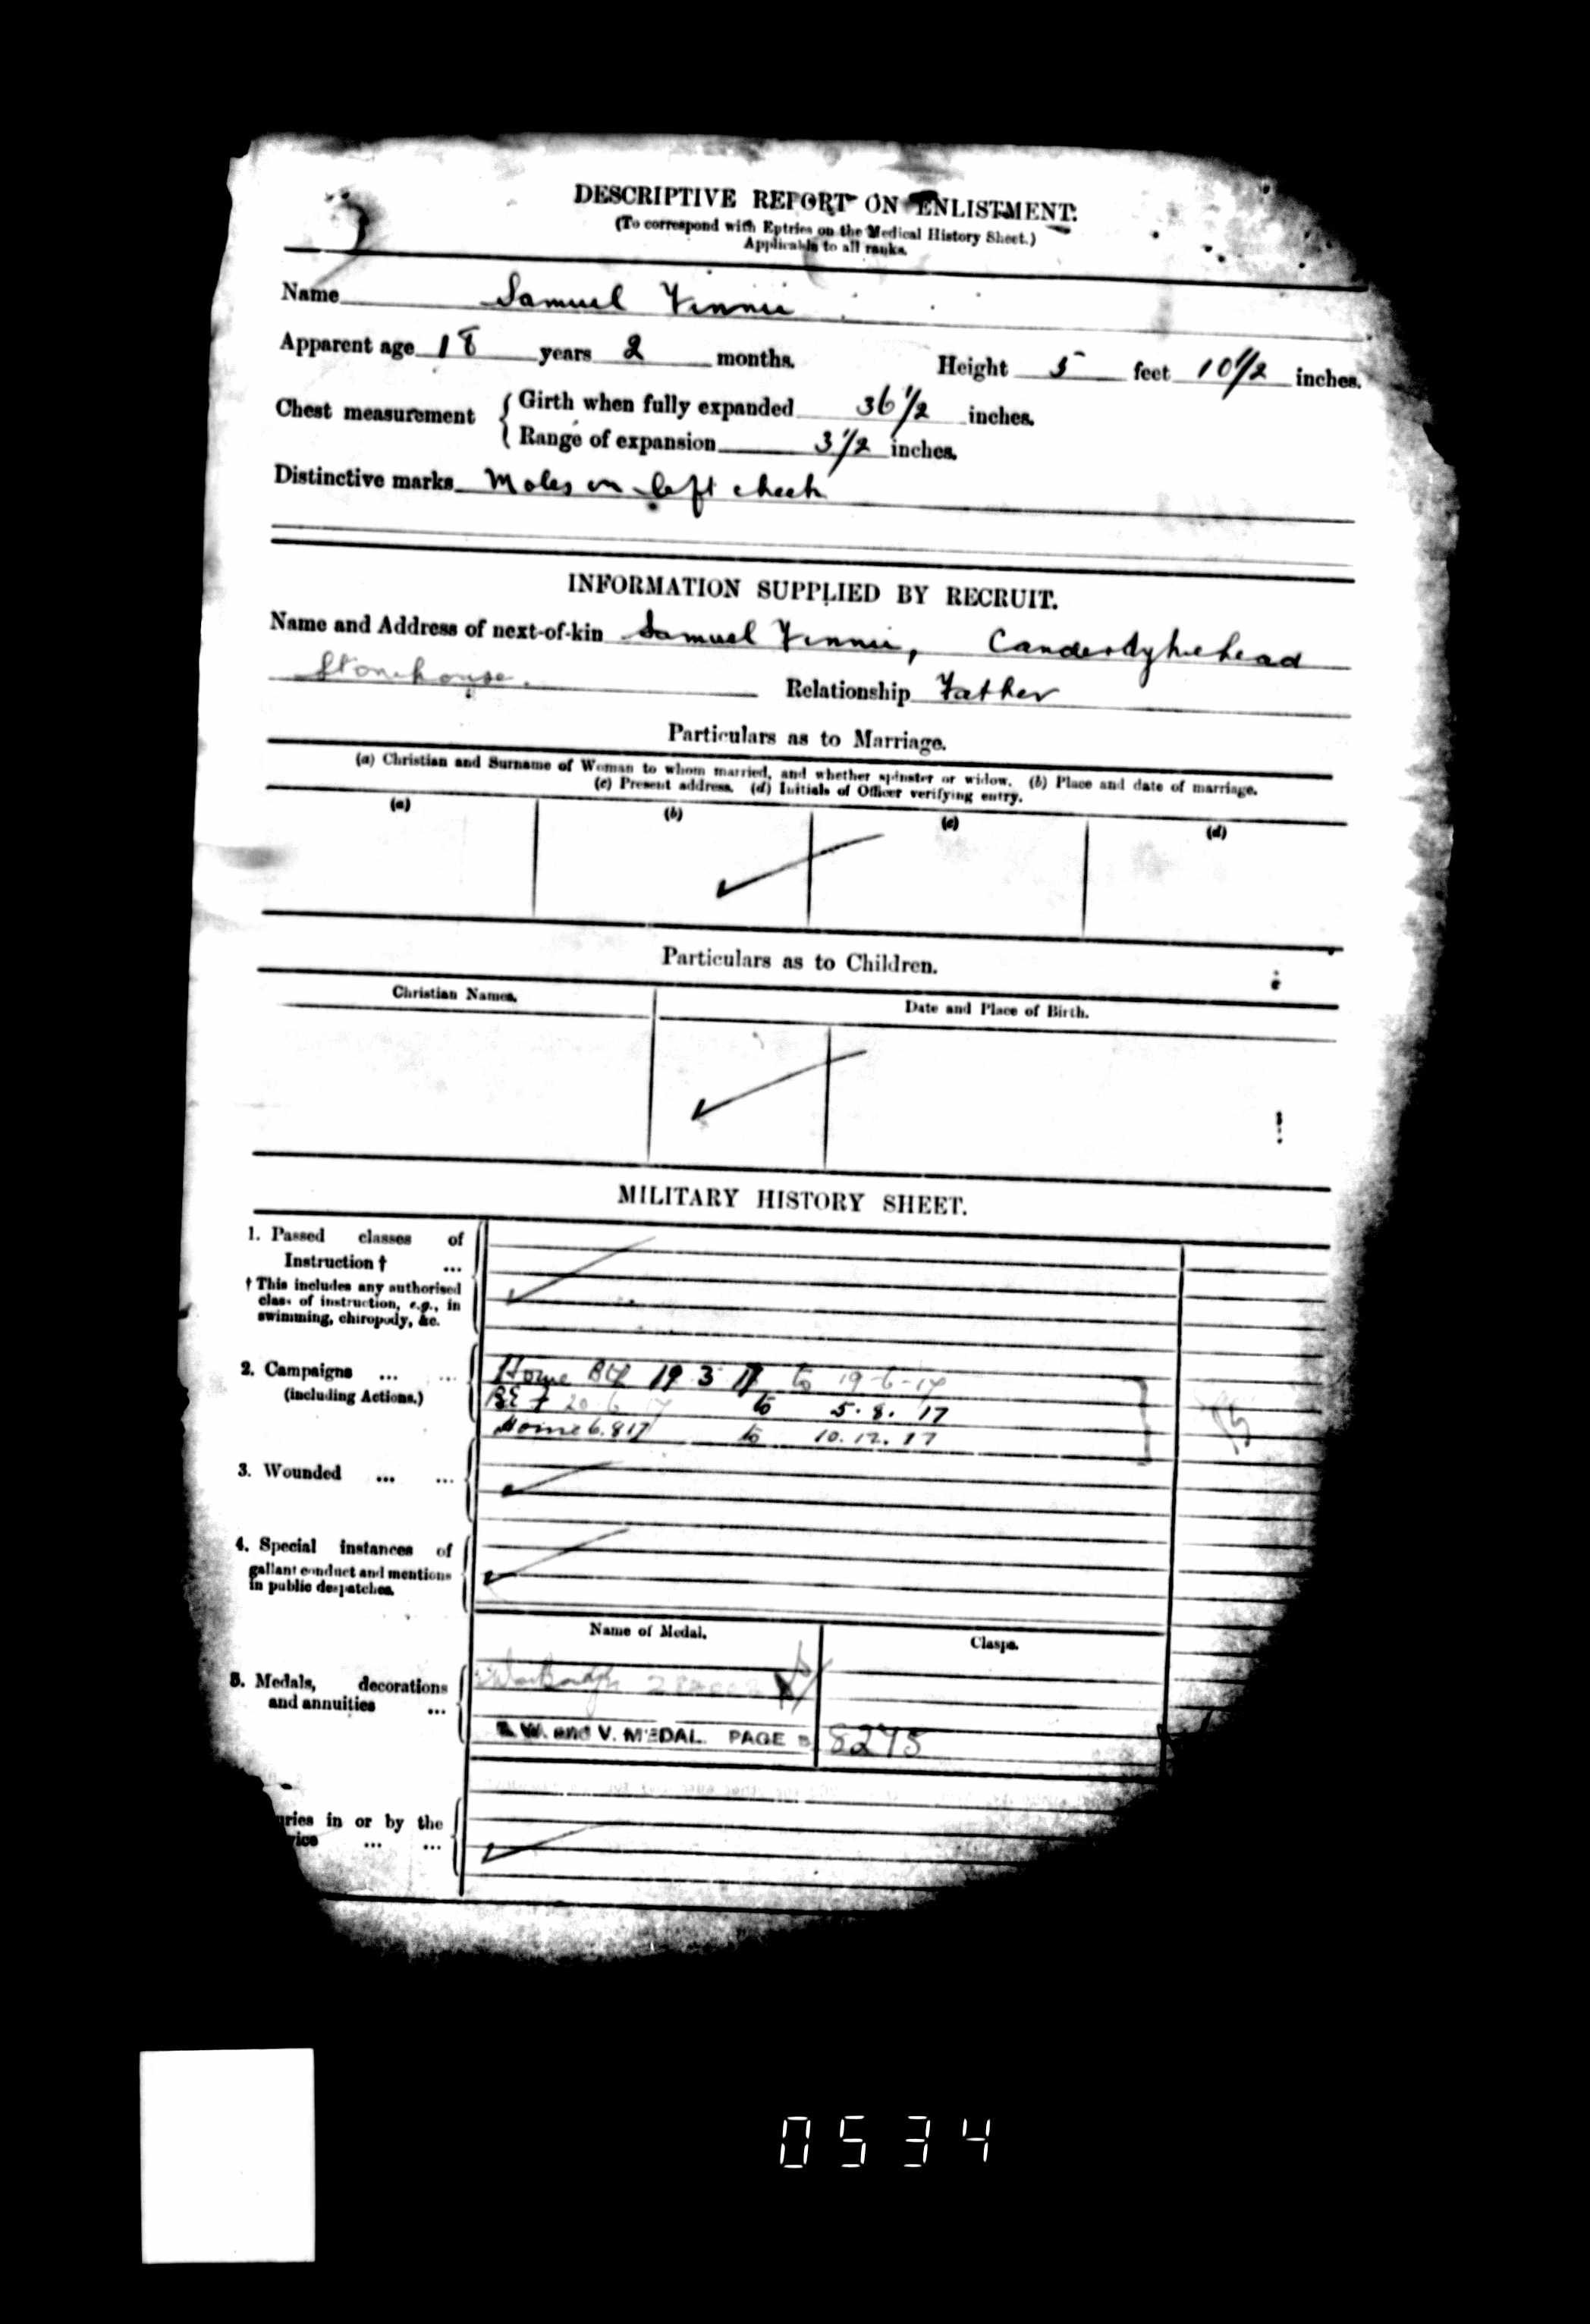 DESCRIPTIVE REPORT ON ENLISTMENT.
(To correspond with Entries on the Medical History Sheet.)
Applicable to all ranks.
Name Samuel Finnie
Apparent age 18 years 2 months. Height 5 feet 10 1/2 inches.
Chest measurement { Girth when fully expanded 36 1/2 inches.
Range of expansion 3 1/2 inches.
Distinctive marks Moles on left cheek
INFORMATION SUPPLIED BY RECRUIT.
Name and Address of next-of-kin Samuel Finnie, Canderdykehead
Stonehouse. Relationship Father
Particulars as to Marriage.
(a) Christian and Surname of Woman to whom married, and whether spinster or widow. (b) Place and date of marriage.
(c) Present address. (d) Initials of Officer verifying entry.
(a) (b) (c) (d)
Particulars as to Children.
Christian Names. Date and Place of Birth.
MILITARY HISTORY SHEET.
1. Passed classes of
Instruction † ...
† This includes any authorised
class of instruction, e.g., in
swimming, chiropody, &c.
2. Campaigns ... ... Home 19 3 17 to 19-6-17
(including Actions.) BEF 20 6 17 to 5.8.17
Home 6.8.17 to 10.12.17
3. Wounded ... ...
4. Special instances of
gallant conduct and mentions
in public despatches.
Name of Medal. Clasps.
5. Medals, decorations
and annuities ...
B.W. and V. MEDAL. PAGE 8275
uries in or by the
vice ... ...
0534